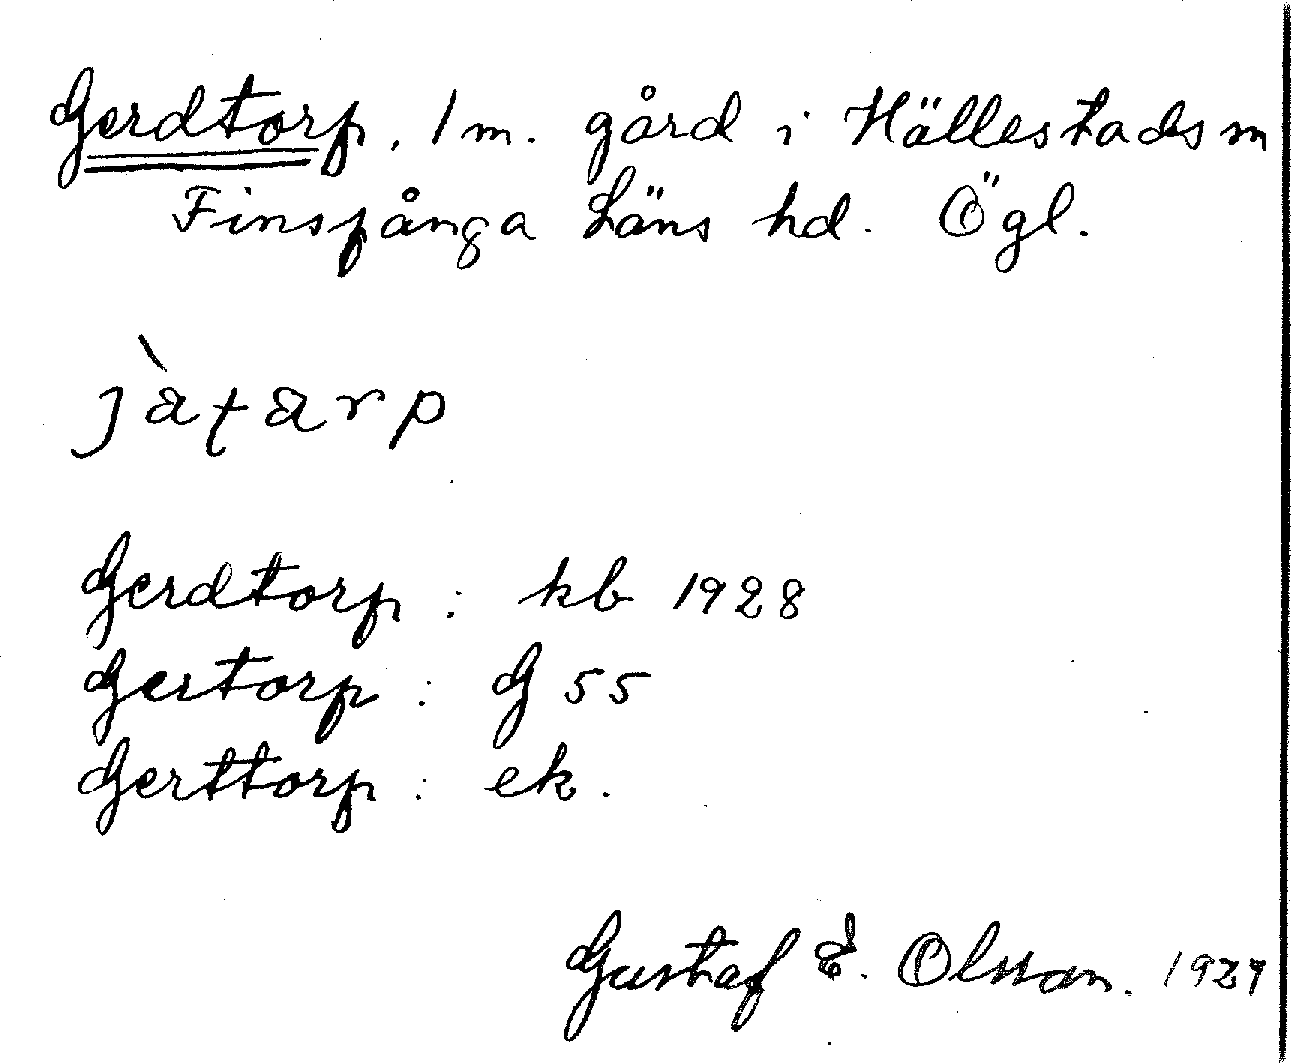 Gerdtorp, 1 m. gård i Hällestads m
Finspånga Läns hd. Ögl.
jàtarp
Gerdtorp : kb 1928
Gertorp : G 55
Gerttorp : ek.
Gustaf E. Olsson. 1929